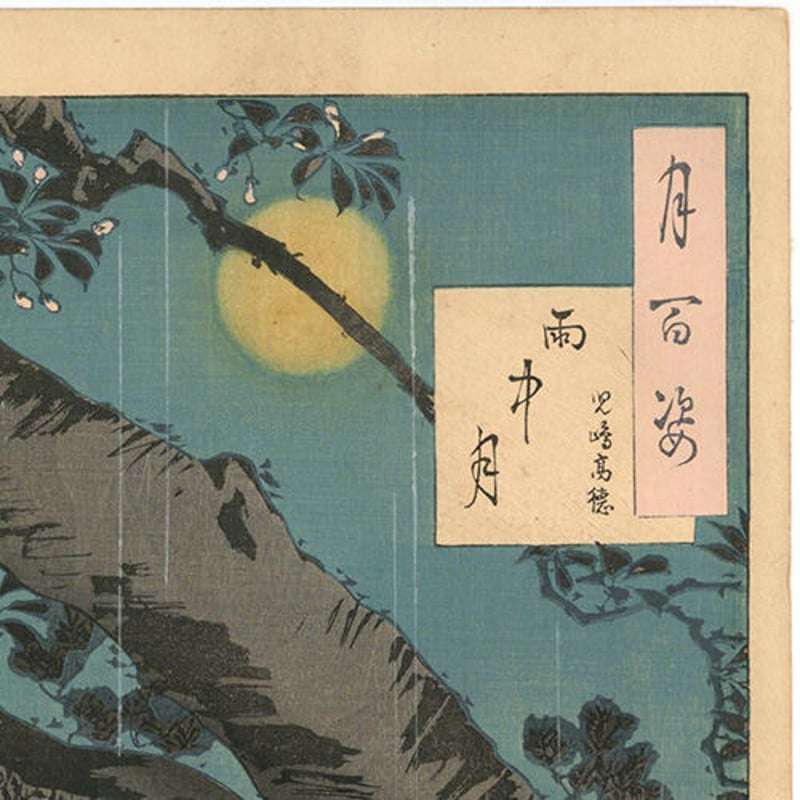 月百姿
雨中月
児嶋高徳